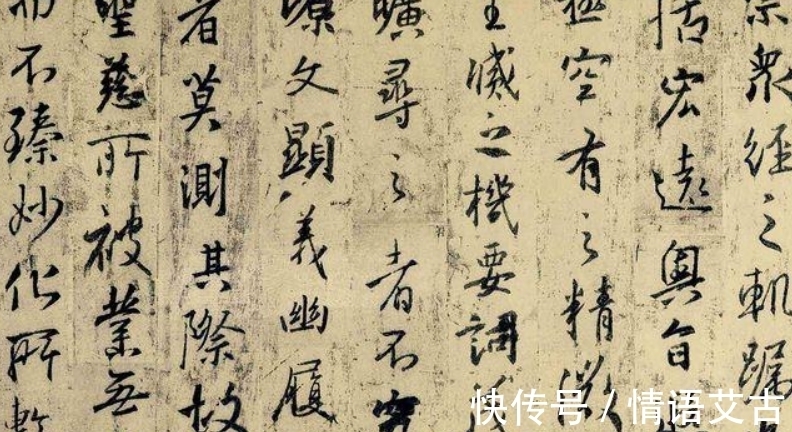 眾經之軌躅
括宏遠奧旨
極空有之精微
生滅之機要詞
曠尋之者不究
源文顯義幽履
者莫測其際故
聖慈所被業無
而不臻妙化所敷
快传号 / 情语艾古